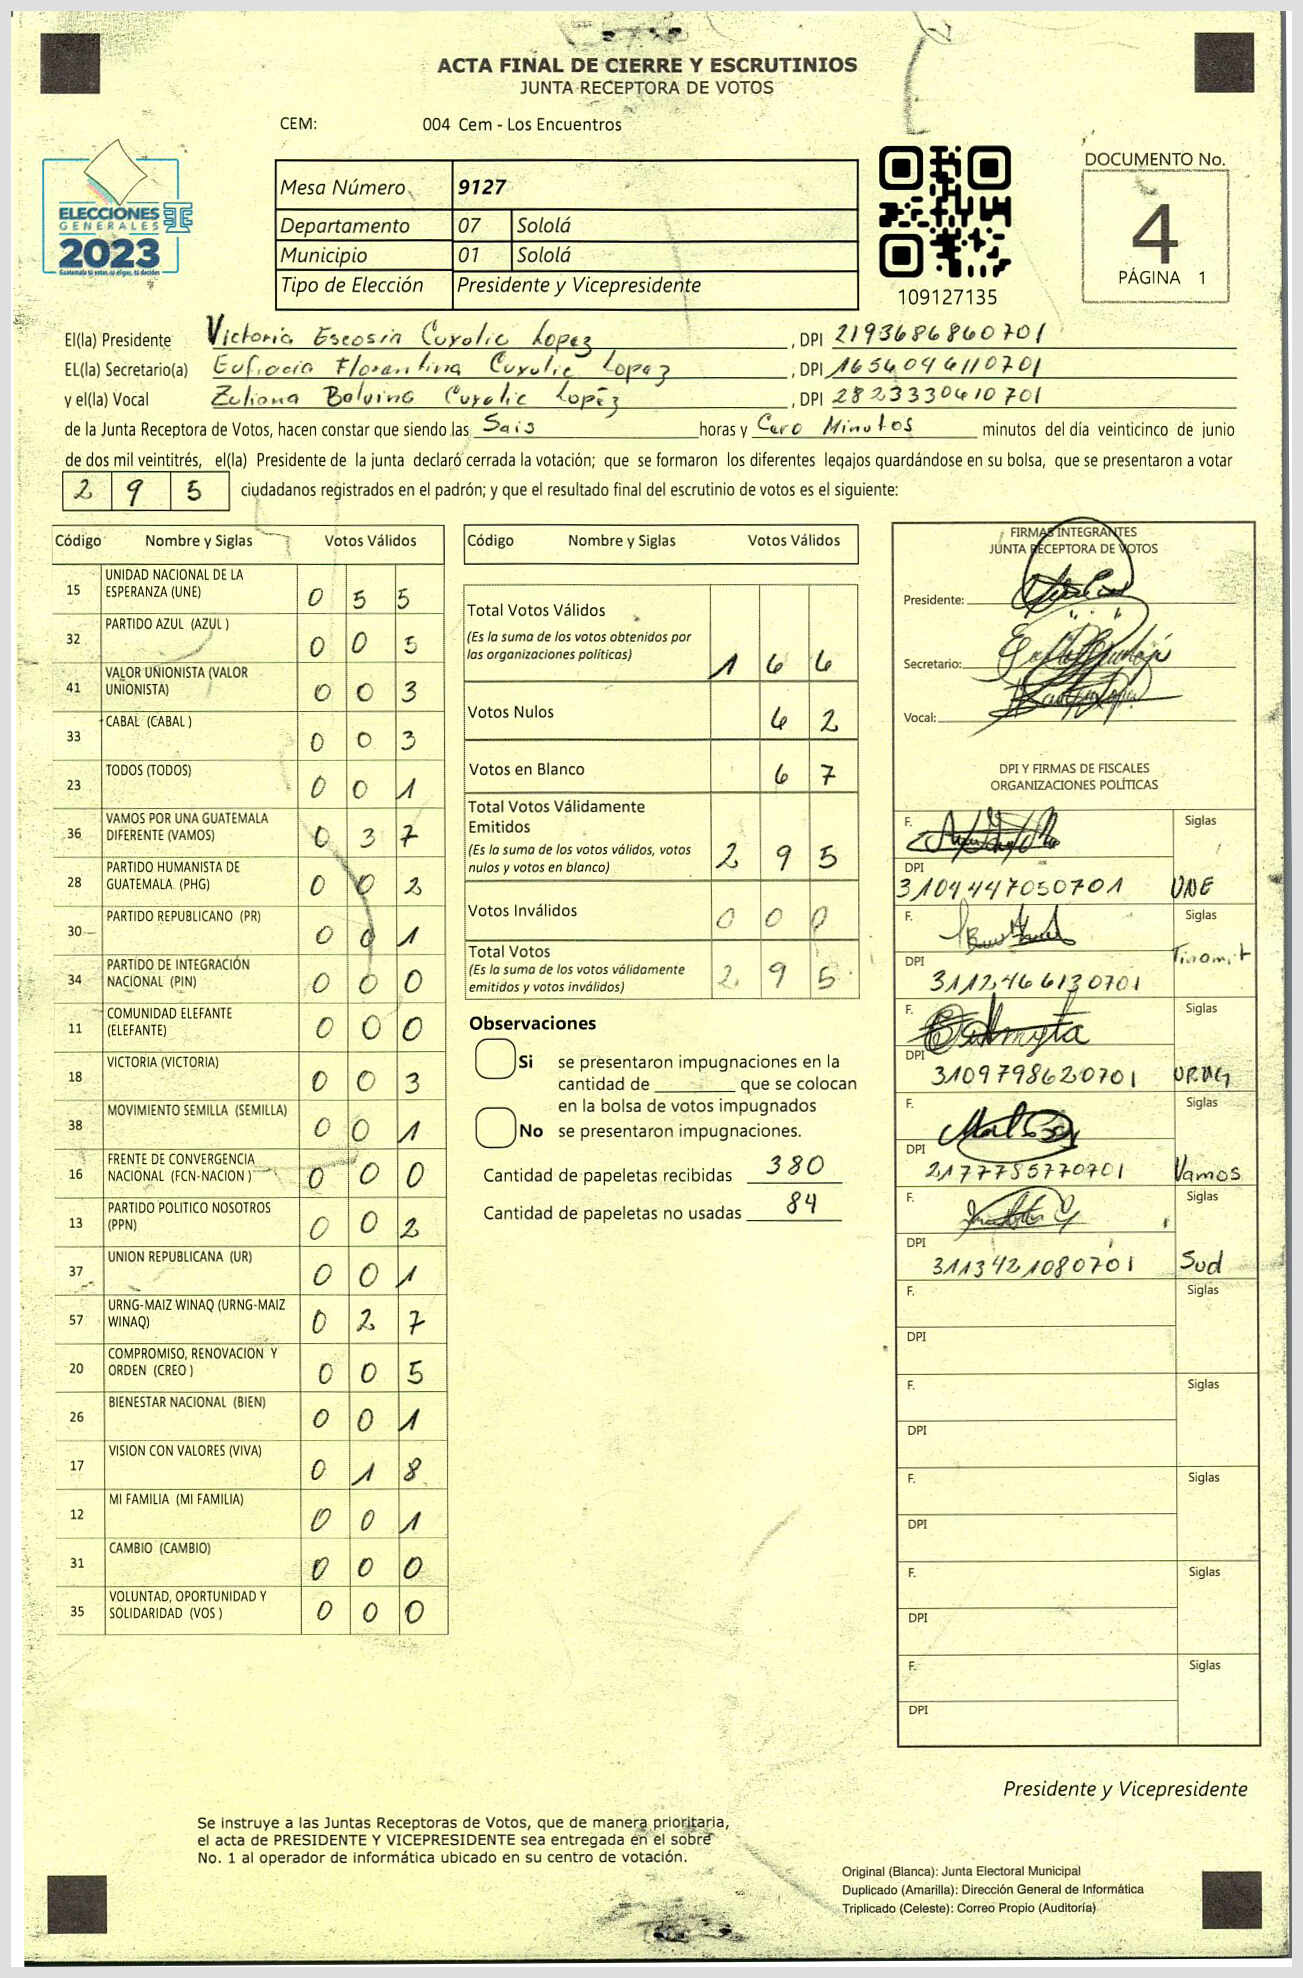 ACTA FINAL DE CIERRE Y ESCRUTINIOS
JUNTA RECEPTORA DE VOTOS
CEM: 004 Cem - Los Encuentros
ELECCIONES
GENERALES
2023
Guatemala tú votas, tú eliges, tú decides
Mesa Número 9127
Departamento 07 Sololá
Municipio 01 Sololá
Tipo de Elección Presidente y Vicepresidente
109127135
DOCUMENTO No.
4
PÁGINA 1
El(la) Presidente Victoria Escosia Cuxulic Lopez, DPI 2193686860701
EL(la) Secretario(a) Eufracia Florentina Cuxulic Lopez, DPI 1656046110701
y el(la) Vocal Zuliana Balvina Cuxulic Lopéz, DPI 2823330610701
de la Junta Receptora de Votos, hacen constar que siendo las Sais horas y Cero Minutos minutos del día veinticinco de junio
de dos mil veintitrés, el(la) Presidente de la junta declaró cerrada la votación; que se formaron los diferentes legajos guardándose en su bolsa, que se presentaron a votar
2 9 5 ciudadanos registrados en el padrón; y que el resultado final del escrutinio de votos es el siguiente:
Código Nombre y Siglas Votos Válidos
15 UNIDAD NACIONAL DE LA
ESPERANZA (UNE) 0 5 5
32 PARTIDO AZUL (AZUL ) 0 0 5
41 VALOR UNIONISTA (VALOR
UNIONISTA) 0 0 3
33 CABAL (CABAL ) 0 0 3
23 TODOS (TODOS) 0 0 1
36 VAMOS POR UNA GUATEMALA
DIFERENTE (VAMOS) 0 3 7
28 PARTIDO HUMANISTA DE
GUATEMALA (PHG) 0 0 2
30 PARTIDO REPUBLICANO (PR) 0 0 1
34 PARTIDO DE INTEGRACIÓN
NACIONAL (PIN) 0 0 0
11 COMUNIDAD ELEFANTE
(ELEFANTE) 0 0 0
18 VICTORIA (VICTORIA) 0 0 3
38 MOVIMIENTO SEMILLA (SEMILLA) 0 0 1
16 FRENTE DE CONVERGENCIA
NACIONAL (FCN-NACION ) 0 0 0
13 PARTIDO POLITICO NOSOTROS
(PPN) 0 0 2
37 UNION REPUBLICANA (UR) 0 0 1
57 URNG-MAIZ WINAQ (URNG-MAIZ
WINAQ) 0 2 7
20 COMPROMISO, RENOVACION Y
ORDEN (CREO ) 0 0 5
26 BIENESTAR NACIONAL (BIEN) 0 0 1
17 VISION CON VALORES (VIVA) 0 1 8
12 MI FAMILIA (MI FAMILIA) 0 0 1
31 CAMBIO (CAMBIO) 0 0 0
35 VOLUNTAD, OPORTUNIDAD Y
SOLIDARIDAD (VOS ) 0 0 0
Código Nombre y Siglas Votos Válidos
Total Votos Válidos
(Es la suma de los votos obtenidos por
las organizaciones políticas) 1 6 6
Votos Nulos 6 2
Votos en Blanco 6 7
Total Votos Válidamente
Emitidos
(Es la suma de los votos válidos, votos
nulos y votos en blanco) 2 9 5
Votos Inválidos 0 0 0
Total Votos
(Es la suma de los votos válidamente
emitidos y votos inválidos) 2 9 5
Observaciones
Si se presentaron impugnaciones en la
cantidad de ________ que se colocan
en la bolsa de votos impugnados
No se presentaron impugnaciones.
Cantidad de papeletas recibidas 380
Cantidad de papeletas no usadas 84
FIRMAS INTEGRANTES
JUNTA RECEPTORA DE VOTOS
Presidente:
Secretario:
Vocal:
DPI Y FIRMAS DE FISCALES
ORGANIZACIONES POLÍTICAS
F. Siglas
DPI
3104447050701 UNE
F. Siglas
DPI Tinamit
3112466130701
F. Siglas
DPI
3109798620701 URNG
F. Siglas
DPI
2177785770701 Vamos
F. Siglas
DPI
3113421080701 Sud
F. Siglas
DPI
F. Siglas
DPI
F. Siglas
DPI
F. Siglas
DPI
F. Siglas
DPI
Presidente y Vicepresidente
Se instruye a las Juntas Receptoras de Votos, que de manera prioritaria,
el acta de PRESIDENTE Y VICEPRESIDENTE sea entregada en el sobre
No. 1 al operador de informática ubicado en su centro de votación.
Original (Blanca): Junta Electoral Municipal
Duplicado (Amarilla): Dirección General de Informática
Triplicado (Celeste): Correo Propio (Auditoría)